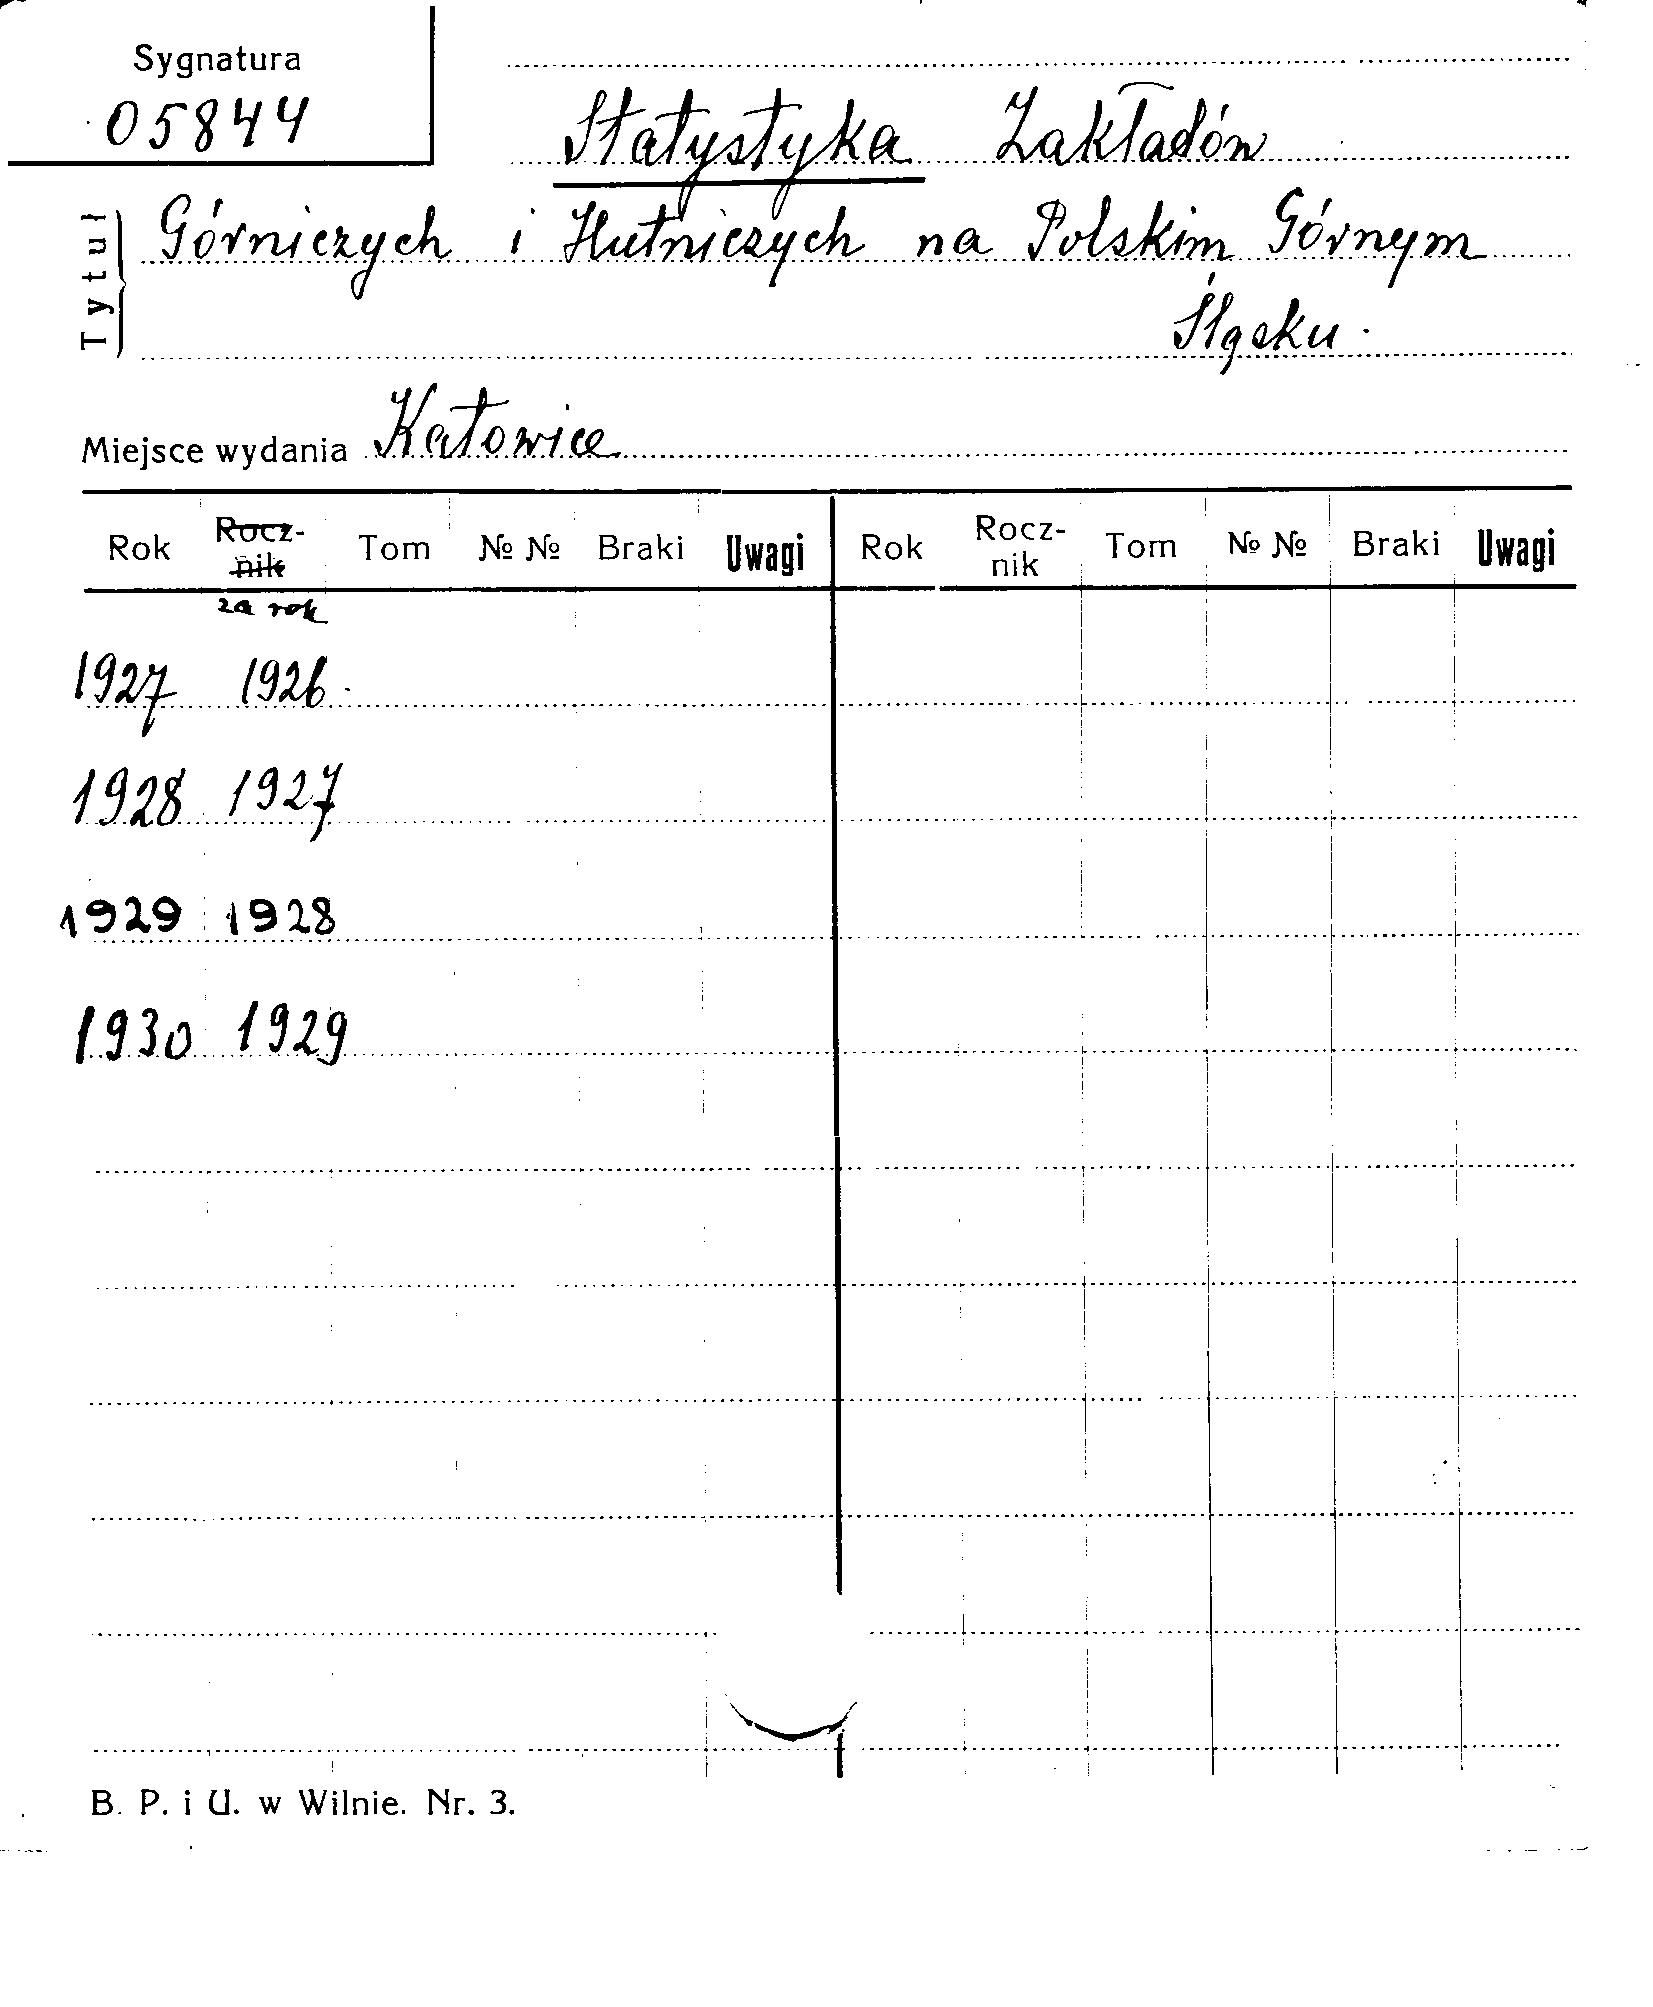 Sygnatura
05844
Statystyka Zakładów
Tytuł
Górniczych i Hutniczych na Polskim Górnym
Śląsku.
Miejsce wydania Katowice
Rok Rocz-nik Tom № № Braki Uwagi Rok Rocz-nik Tom № № Braki Uwagi
za rok
1927 1926
1928 1927
1929 1928
1930 1929
B. P. i U. w Wilnie. Nr. 3.